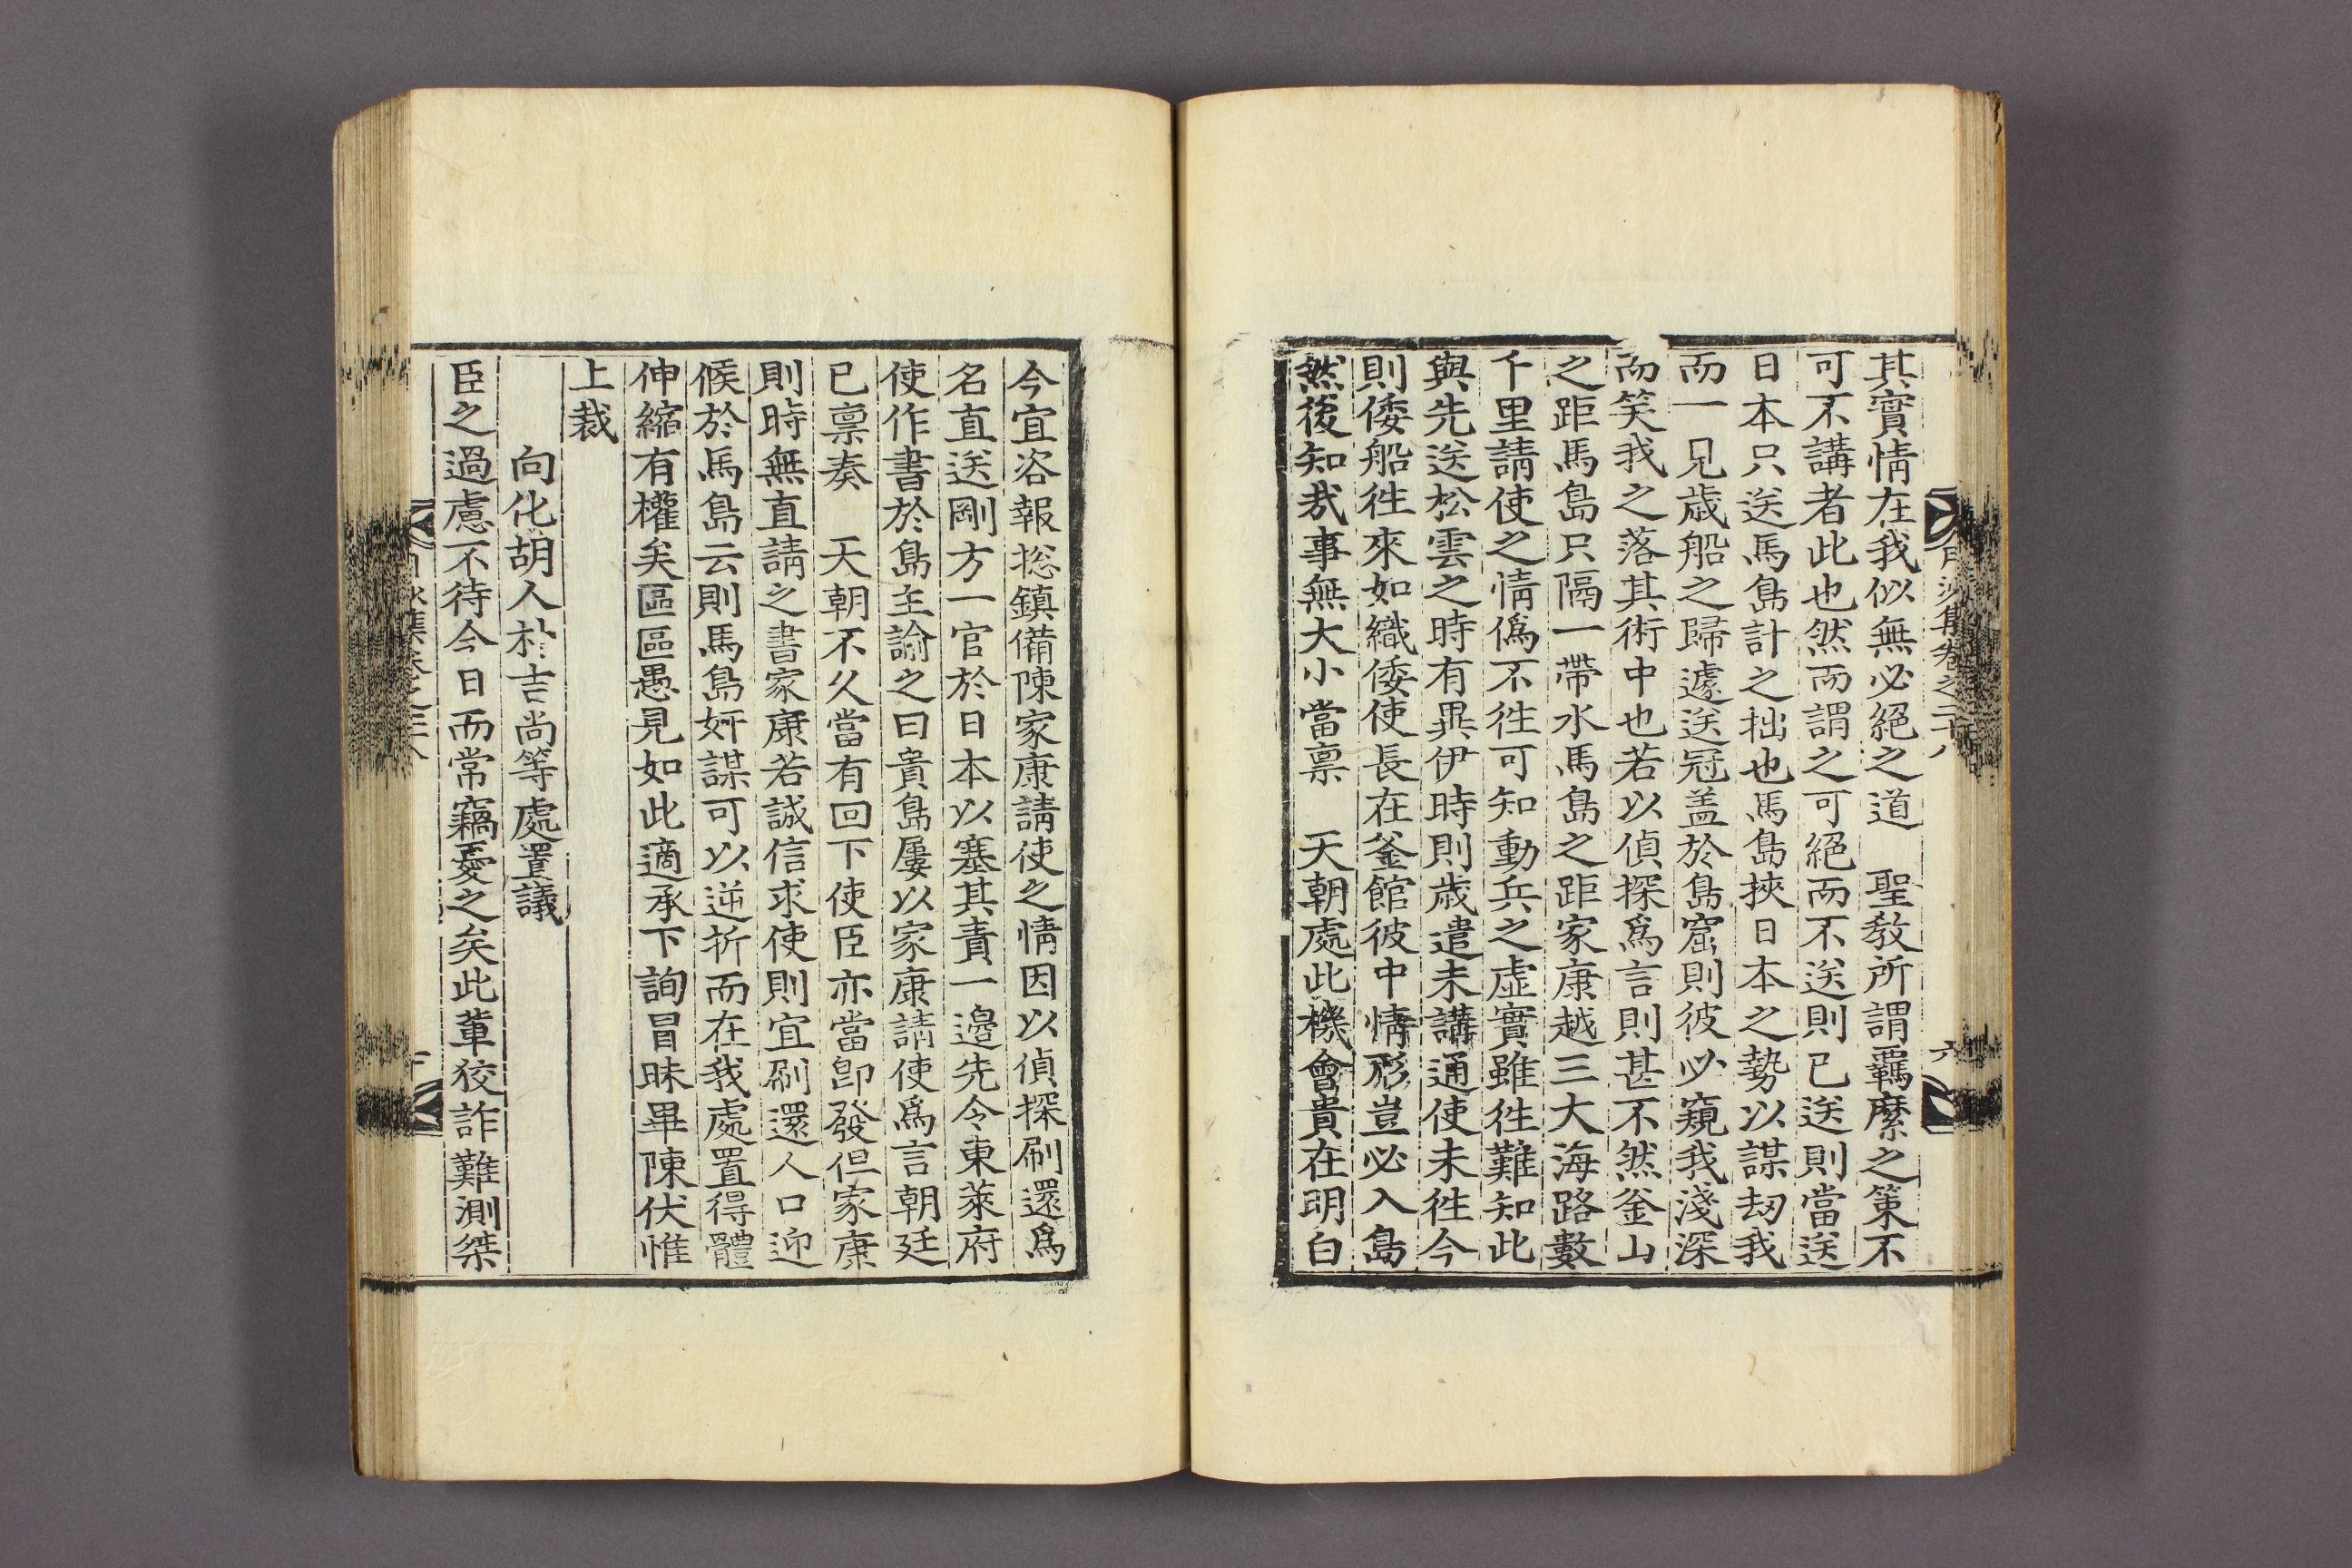 其實情在我似無必絕之道 聖敎所謂羈縻之策不
可不講者此也然而謂之可絕而不送則已送則當送
日本只送馬島計之拙也馬島挾日本之勢以謀刧我
而一兄歲船之歸遽送冠盖於島窟則彼必窺我淺深
而笑我之落其術中也若以偵探爲言則甚不然釜山
之距馬島只隔一帶水馬島之距家康越三大海路數
千里請使之情僞不徃可知動兵之虛實雖徃難知此
與先送松雲之時有異伊時則歲遣未講通使未徃今
則倭船徃來如織倭使長在釜館彼中情形豈必入島
然後知哉事無大小當禀 天朝處此機會貴在明白
月沙集卷之二十八
六
今宜咨報揔鎮備陳家康請使之情因以偵探刷還爲
名直送剛方一官於日本以塞其責一邊先令東萊府
使作書於島主諭之曰貴島屢以家康請使爲言朝廷
已禀奏 天朝不久當有回下使臣亦當卽發但家康
則時無直請之書家康若誠信求使則宜刷還人口迎
候於馬島云則馬島奸謀可以逆折而在我處置得體
伸縮有權矣區區愚見如此適承下詢冒昧畢陳伏惟
上裁
向化胡人於吉尙等處置議
臣之過慮不待今日而常竊憂之矣此輩狡詐難測桀